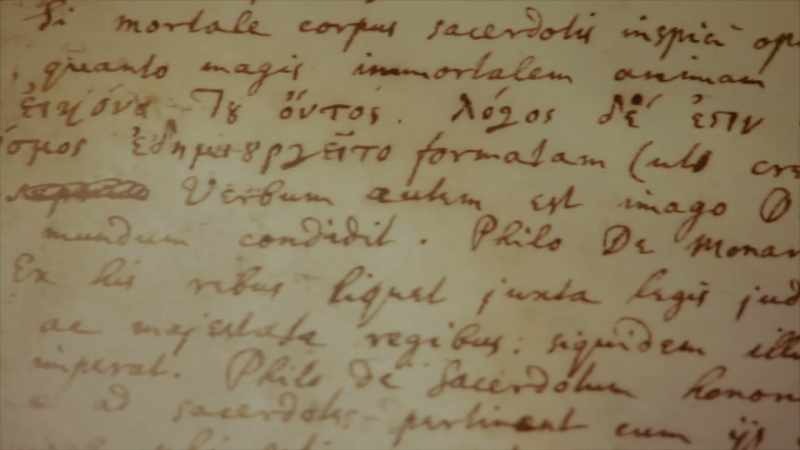 Si mortale corpus sacerdotis inspici
quanto magis immortalem animam
τȣ ὄντος. λόγος δέ ἐστιν
ἐδημιȣργεῖτο formatam (ut
Verbum autem est imago D
mundum condidit. Philo De Monar
Ex his rebus liquet juxta legis jud
ac majestate regibus: siquidem illu
imperat. Philo de Sacerdotum honor
ad sacerdotes pertinent cum ijs